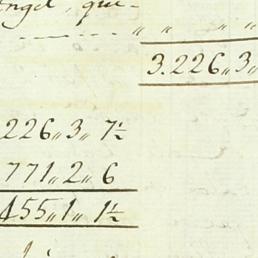 ngel, que-
" " " "
3.226,,3,,
226,,3,, 7½
771,,2,, 6
455,,1,, 1½